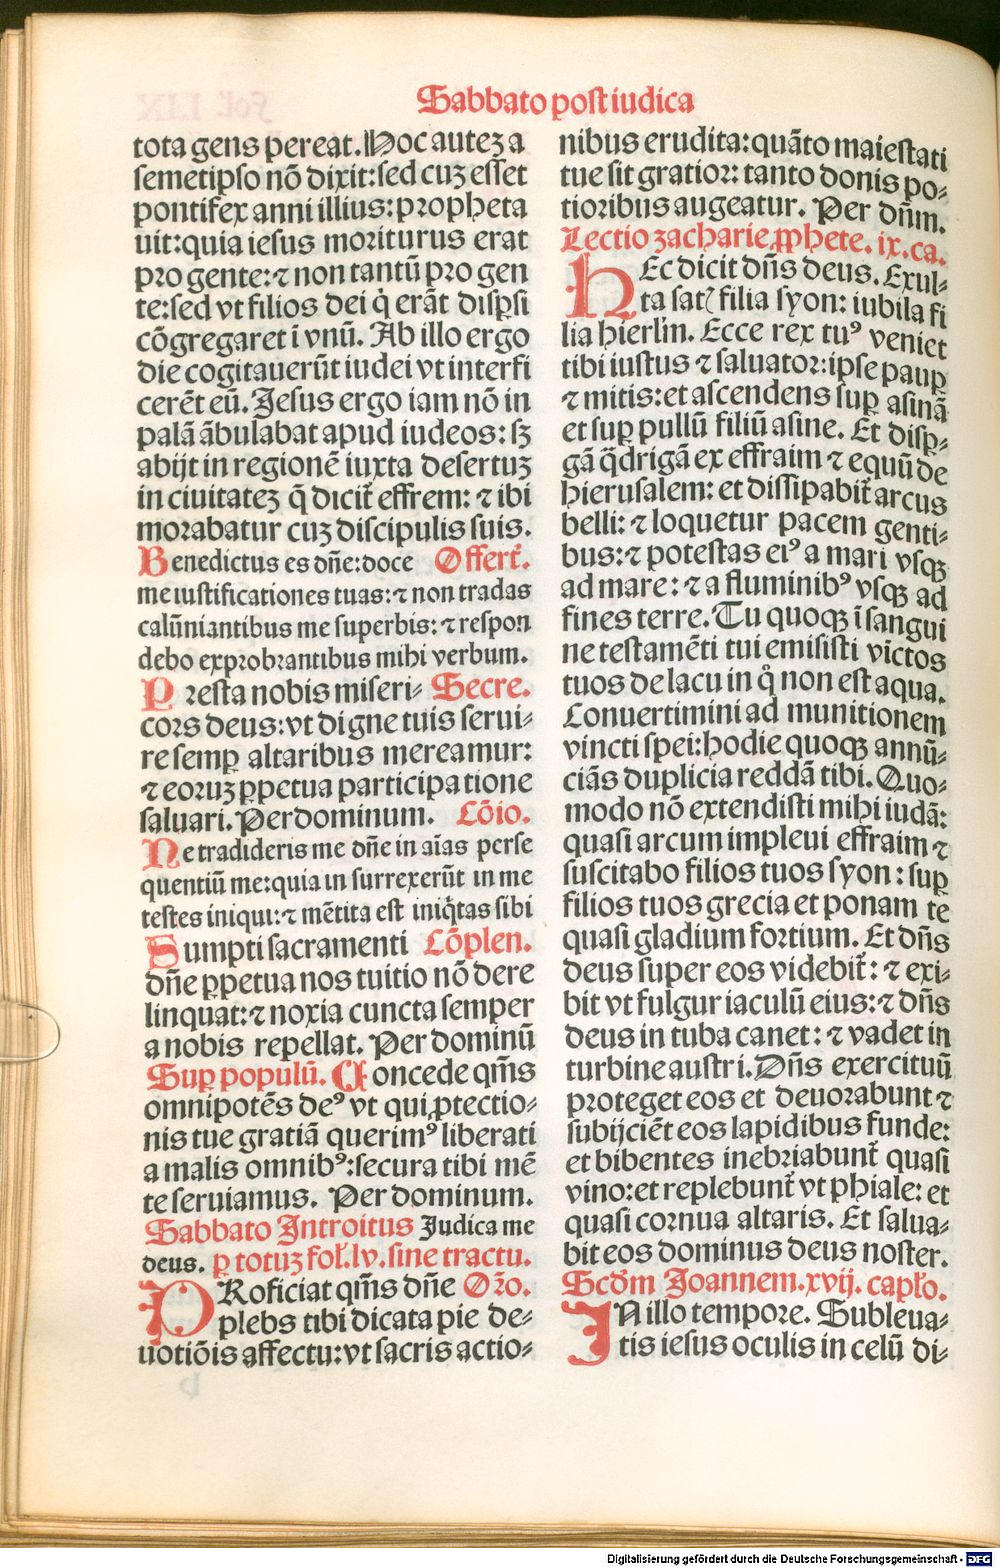 Sabbato post iudica
tota gens pereat. Hoc auteꝫ a
semetipso nō dixit: sed cuꝫ esset
pontifex anni illius: propheta
uit: quia iesus moriturus erat
pro gente: ⁊ non tantū pro gen
te: sed vt filios dei q̇ erāt disꝑsi
cōgregaret ī vnū. Ab illo ergo
die cogitauerūt iudei vt interfi
cerēt eū. Jesus ergo iam nō in
palā ābulabat apud iudeos: sꝫ
abijt in regionē iuxta desertuꝫ
in ciuitateꝫ q̄ dicit̄ effrem: ⁊ ibi
morabatur cuꝫ discipulis suis.
Benedictus es dn̄e: doce Offert̄.
me iustificationes tuas: ⁊ non tradas
calūniantibus me superbis: ⁊ respon
debo exprobrantibus mihi verbum.
Presta nobis miseri⸗ Secre.
cors deus: vt digne tuis serui⸗
re semꝑ altaribus mereamur:
⁊ eoruꝫ ꝑpetua participatione
saluari. Per dominum. Cōio.
Ne tradideris me dn̄e in aīas perse
quentiū me: quia insurrexerūt in me
testes iniqui: ⁊ mētita est iniq̇tas sibi
Sumpti sacramenti Cōplen.
dn̄e ꝑpetua nos tuitio nō dere
linquat: ⁊ noxia cuncta semper
a nobis repellat. Per dominū
Suꝑ populū. Concede qm̄s
omnipotēs deꝰ vt qui ꝓtectio⸗
nis tue gratiā querimꝰ liberati
a malis omnibꝰ: secura tibi mē
te seruiamus. Per dominum.
Sabbato Introitus Judica me
deus. ꝑ totuꝫ fol̄. lv. sine tractu.
PRoficiat qm̄s dn̄e Oro.
plebs tibi dicata pie de⸗
uotiōis affectu: vt sacris actio⸗
nibus erudita: quāto maiestati
tue sit gratior: tanto donis po⸗
tioribus augeatur. Per dn̄m.
Lectio zacharie ꝓphete. ix. ca.
HEc dicit dn̄s deus. Exul⸗
ta sat̄ filia syon: iubila fi
lia hierl̄m. Ecce rex tuꝰ veniet
tibi iustus ⁊ saluator: ipse pauꝑ
⁊ mitis: et ascendens suꝑ asinā
et suꝑ pullū filiū asine. Et disꝑ⸗
gā q̄drigā ex effraim ⁊ equū de
hierusalem: et dissipabit̄ arcus
belli: ⁊ loquetur pacem genti⸗
bus: ⁊ potestas eiꝰ a mari vsqꝫ
ad mare: ⁊ a fluminibꝰ vsqꝫ ad
fines terre. Tu quoqꝫ ī sangui
ne testamēti tui emisisti vīctos
tuos de lacu in q̊ non est aqua.
Conuertimini ad munitionem
vincti spei: hodie quoqꝫ annū⸗
ciās duplicia reddā tibi. Quo⸗
modo nō extendisti mihi iudā:
quasi arcum impleui effraim ⁊
suscitabo filios tuos syon: suꝑ
filios tuos grecia et ponam te
quasi gladium fortium. Et dn̄s
deus super eos videbit̄: ⁊ exi⸗
bit vt fulgur iaculū eius: ⁊ dn̄s
deus in tuba canet: ⁊ vadet in
turbine austri. Dn̄s exercituū
proteget eos et deuorabunt ⁊
subijciēt eos lapidibus funde:
et bibentes inebriabunt̄ quasi
vino: et replebunt̄ vt phiale: et
quasi cornua altaris. Et salua⸗
bit eos dominus deus noster.
Scdm̄ Joannem. xvij. capl̄o.
IN illo tempore. Subleua⸗
tis iesus oculis in celū di⸗
Digitalisierung gefördert durch die Deutsche Forschungsgemeinschaft - DFG